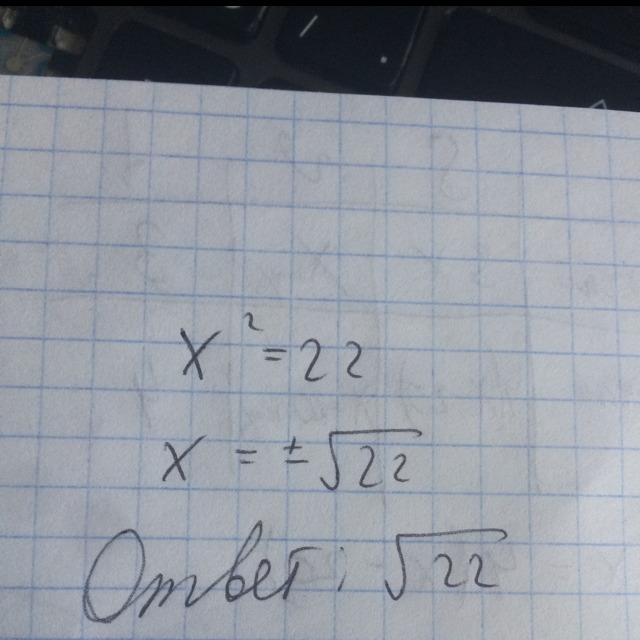 x² = 22
x = ±√22
Ответ: √22